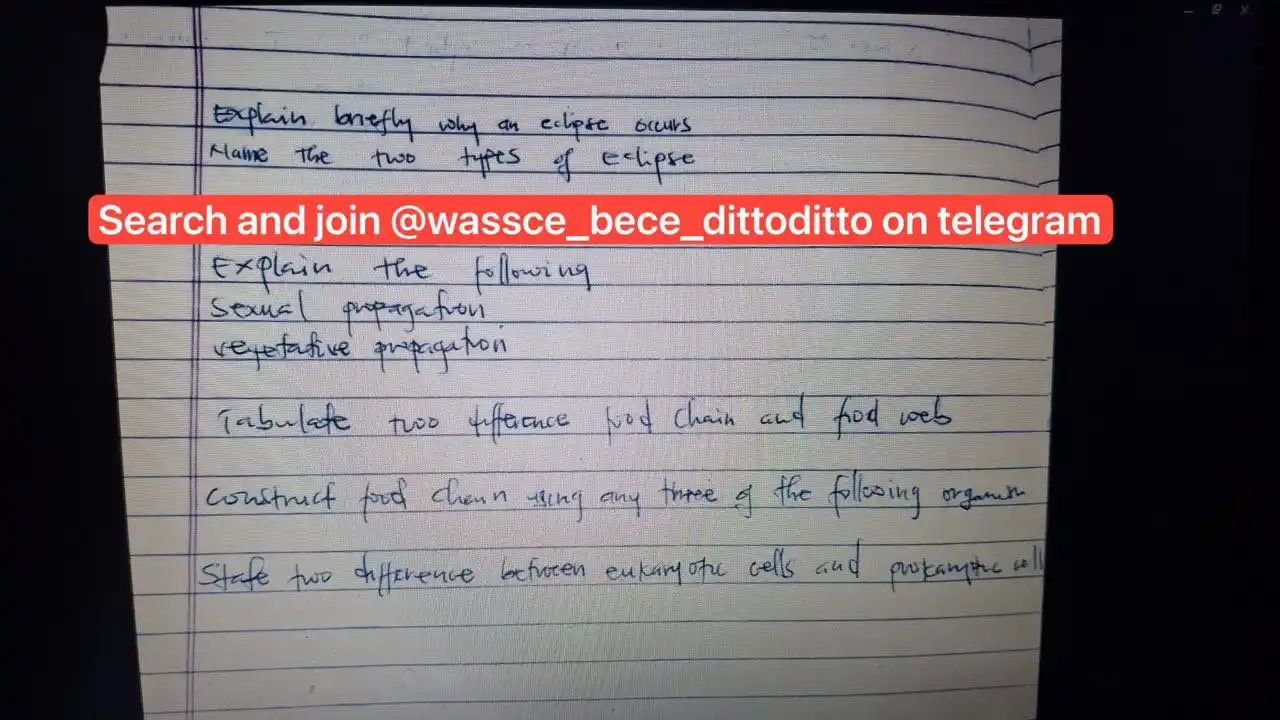 Explain briefly why an eclipse occurs
Name the two types of eclipse
Search and join @wassce_bece_dittoditto on telegram
Explain the following
Sexual propagation
vegetative propagation
Tabulate two difference food chain and food web
Construct food chain using any three of the following organism
State two difference between eukaryotic cells and prokaryotic cell